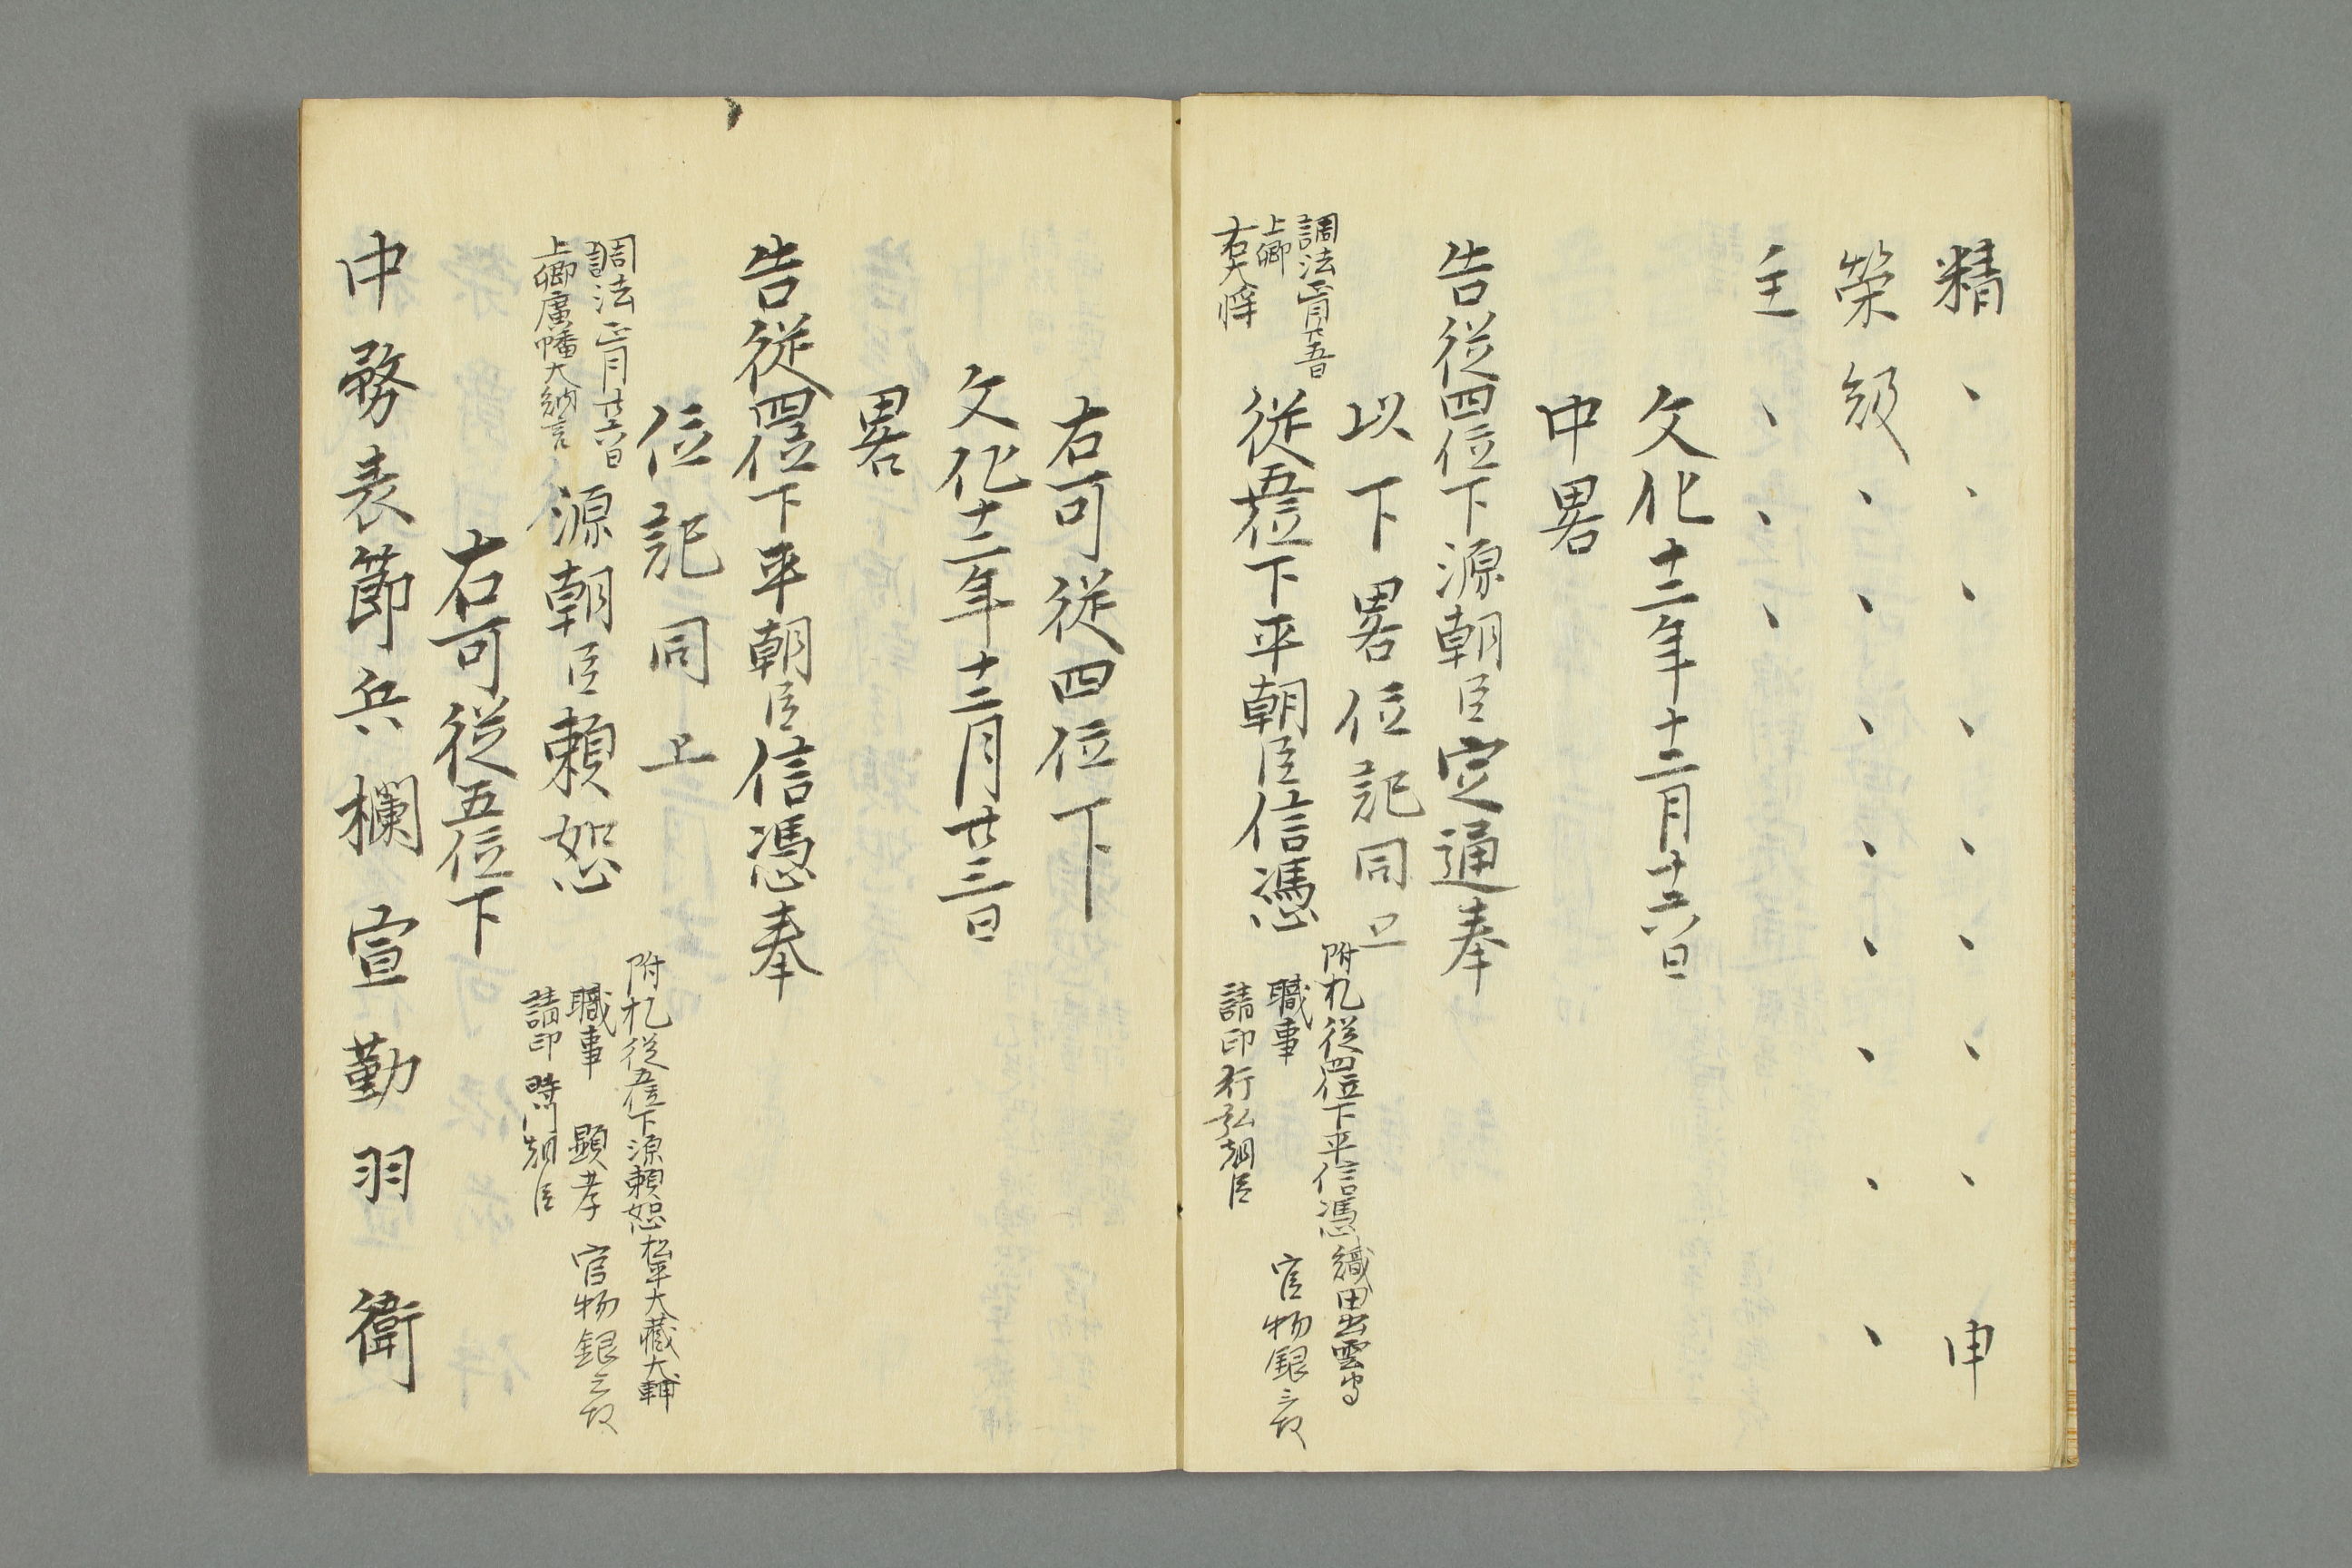 精、、、、、、、、申
榮級、、、、、、、、
主、、、
文化十二年十二月十六日
中畧
告従四位下源朝臣定通奉
以下畧位記同上
調法正月廿五日
上卿
右大将
従五位下平朝臣信憑
附札従四位下平信憑織田出雲守
職事 官物銀三枚
請印行弘朝臣
右可従四位下
文化十二年十二月廿三日
畧
告従四位下平朝臣信憑奉
位記同上
調法正月廿六日
上卿廣幡大納言
源朝臣頼恕
附札従五位下源頼恕松平大蔵大輔
職事 顕孝 官物銀三枚
請印 朝臣
右可従五位下
中務表節兵欄宣勤羽衛